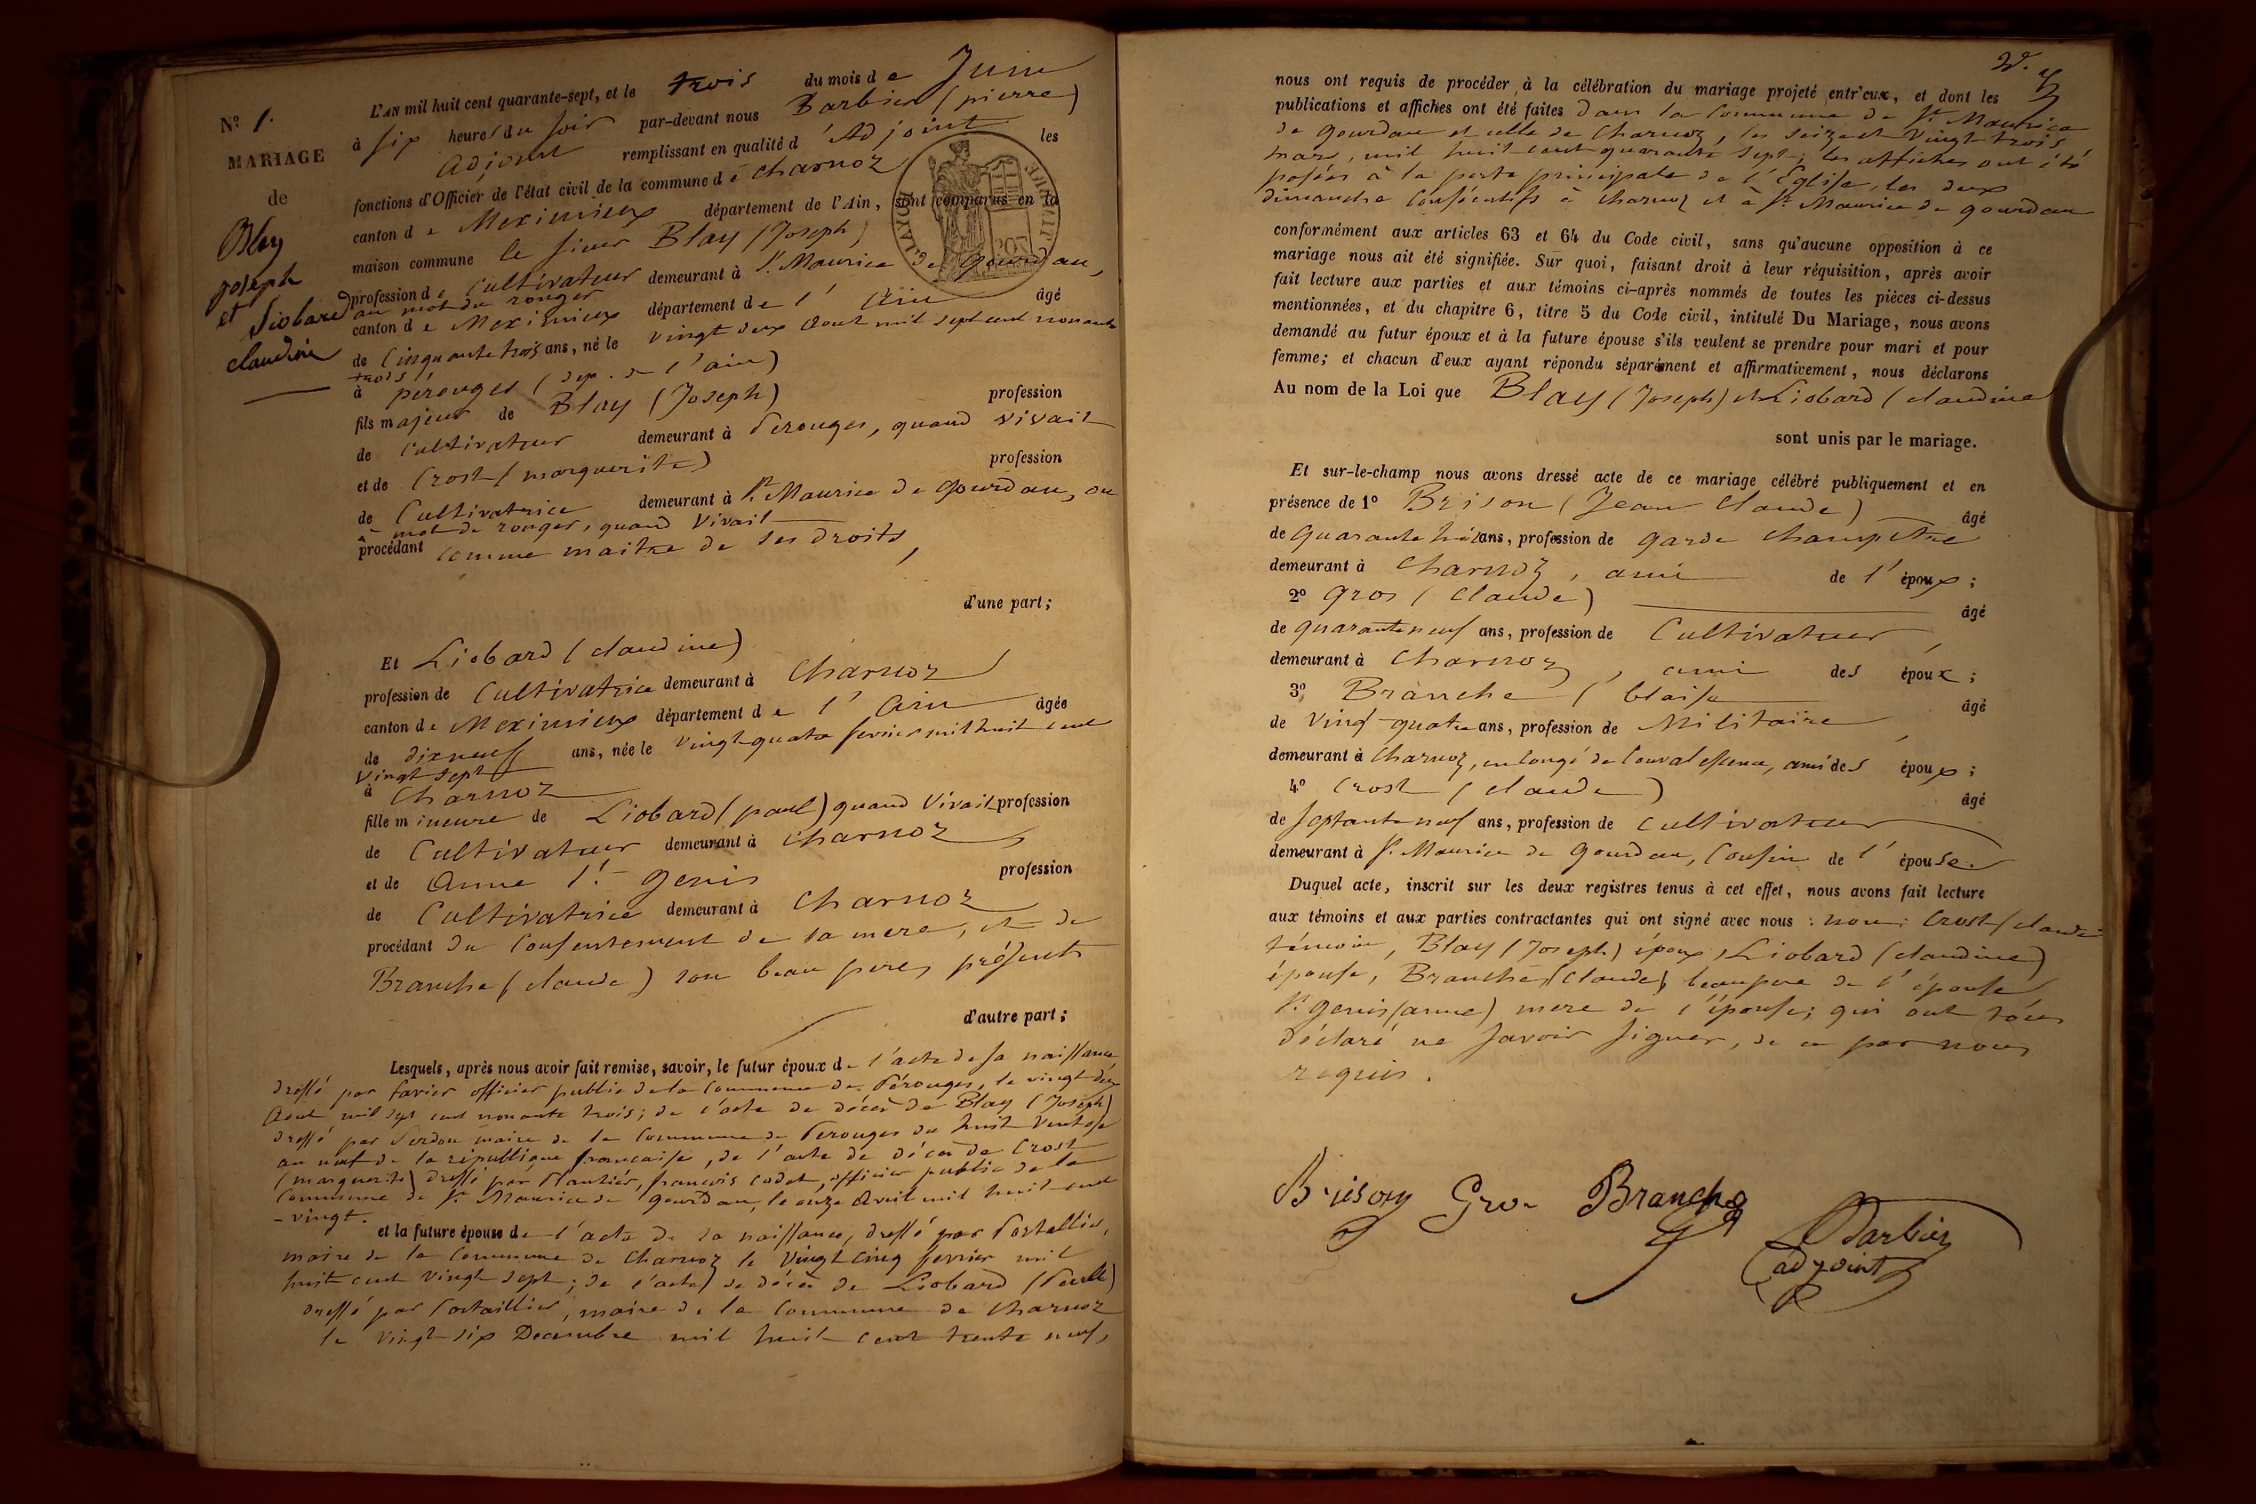 N.º 1.
MARIAGE
de
Blay
joseph
et Liobard
claudine
L'AN mil huit cent quarante-sept, et le trois du mois de Juin
à six heures du soir par-devant nous Barbier (pierre)
adjoint remplissant en qualité d'Adjoint les
fonctions d'Officier de l'état civil de la commune de charnoz
canton de Meximieux département de l'Ain, sont comparus en la
maison commune le sieur Blay (Joseph)
profession de Cultivateur demeurant à St. Maurice de gourdan,
au mot du ronger
canton de Meximieux département de l'Ain âgé
de Cinquante trois ans, né le vingt deux Aout mil sept cent nonante
trois
à pérouges (dep. de l'ain)
fils majeur de Blay (Joseph) profession
de Cultivateur demeurant à Perouges, quand vivait
et de Crost (marguerite) profession
de Cultivatrice demeurant à St. Maurice de gourdan, ou
mot de ronger, quand vivait
procédant comme maitre de ses droits,
d'une part;
Et Liobard (claudine)
profession de Cultivatrice demeurant à Charnoz
canton de Meximieux département de l'Ain âgée
de dixneuf ans, née le vingt quatre fevrier mil huit cent
vingt sept
à Charnoz
fille mineure de Liobard (paul) quand vivait profession
de Cultivateur demeurant à charnoz,
et de Anne St. genis profession
de Cultivatrice demeurant à Charnoz
procédant du Consentement de sa mere, et de
Branche (claude) son beau pere, présents
d'autre part;
Lesquels, après nous avoir fait remise, savoir, le futur époux de l'acte de sa naissance
dressé par favier officier public de la Commune de Pérouges, le vingt deux
Aout mil sept cent nonante trois; de l'acte de décès de Blay (Joseph)
dressé par Perdon maire de la Commune de Perouges du huit Ventose
an neuf de la république francaise, de l'acte de décès de Crost
(marguerite) dressé par françois cadet, officier public de la
Commune de St. Maurice de gourdan, le onze Avril mil huit cent
-vingt.
et la future épouse de l'acte de sa naissance, dressé par Portallier,
maire de la Commune de Charnoz le vingt cinq fevrier mil
huit cent vingt sept; de l'acte de décès de Liobard
dressé par Portaillier, maire de la Commune de Charnoz
le vingt six Decembre mil huit cent trente neuf,
nous ont requis de procéder à la célébration du mariage projeté entr'eux, et dont les
publications et affiches ont été faites dans la Commune de St. Maurice
de gourdan et celle de Charnoz, les seize et vingt trois
mars, mil huit cent quarante sept; les affiches ont été
posées à la porte principale de l'Eglise, les deux
dimanche Consécutifs à charnoz et à St. Maurice de gourdan
conformément aux articles 63 et 64 du Code civil, sans qu'aucune opposition à ce
mariage nous ait été signifiée. Sur quoi, faisant droit à leur réquisition, après avoir
fait lecture aux parties et aux témoins ci-après nommés de toutes les pièces ci-dessus
mentionnées, et du chapitre 6, titre 5 du Code civil, intitulé Du Mariage, nous avons
demandé au futur époux et à la future épouse s'ils veulent se prendre pour mari et pour
femme; et chacun d'eux ayant répondu séparément et affirmativement, nous déclarons
Au nom de la Loi que Blay (Joseph) et Liobard (claudine
sont unis par le mariage.
Et sur-le-champ nous avons dressé acte de ce mariage célébré publiquement et en
présence de 1º Brison (Jean Claude) âgé
de quarante huit ans, profession de garde champêtre
demeurant à Charnoz, ami de l'époux;
2º gros (Claude) âgé
de quarante neuf ans, profession de Cultivateur,
demeurant à Charnoz, ami des époux;
3º Branche (blaise âgé
de vingt-quatre ans, profession de Militaire,
demeurant à Charnoz, en Congé de Convalescence, ami des époux;
4º Crost (claude) âgé
de septante neuf ans, profession de Cultivateur
demeurant à St. Maurice de Gourdan, Cousin de l'épouse.
Duquel acte, inscrit sur les deux registres tenus à cet effet, nous avons fait lecture
aux témoins et aux parties contractantes qui ont signé avec nous: non: Crost (claude
témoin, Blay (Joseph) époux, Liobard (claudine)
épouse, Branche (Claude) beaupere de l'épouse
St. genis (anne) mere de l'épouse; qui ont tous
déclaré ne savoir signer, de ce par nous
requis.
Brison Gros Branche
Barbier
adjoint